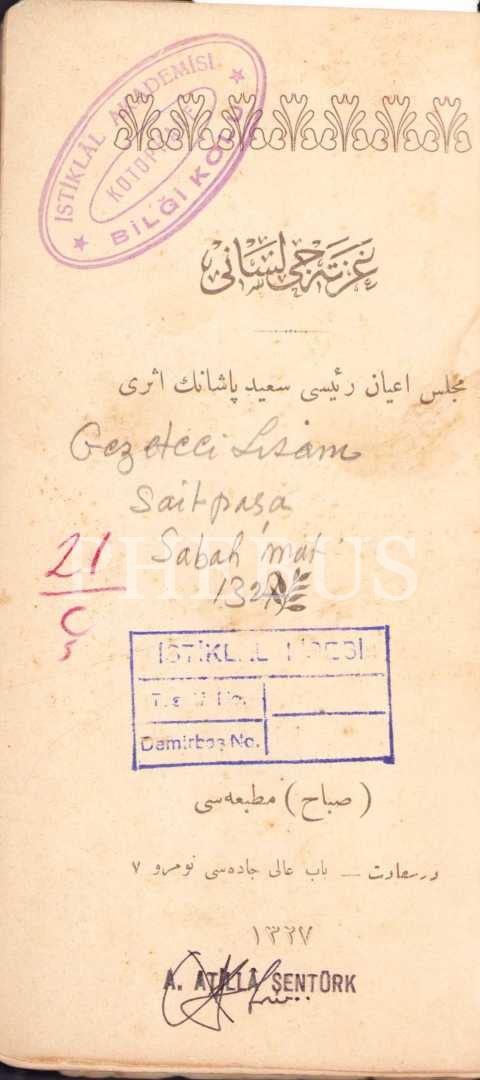 İSTİKLÂL AKADEMİSİ
BİLGİ KOLU
غزته جی لسانی
مجلس اعیان رئیسی سعید پاشانك اثری
Gezeteci Lisanı
Sait paşa
Sabah mat.
21
PHEBUS
İSTİKLAL LİSESİ
No.
Demirbaş No.
( صباح ) مطبعه‌سی
درسعادت — باب عالی جاده‌سی نومرو ٧
١٣٢٧
A. ATİLLÂ ŞENTÜRK